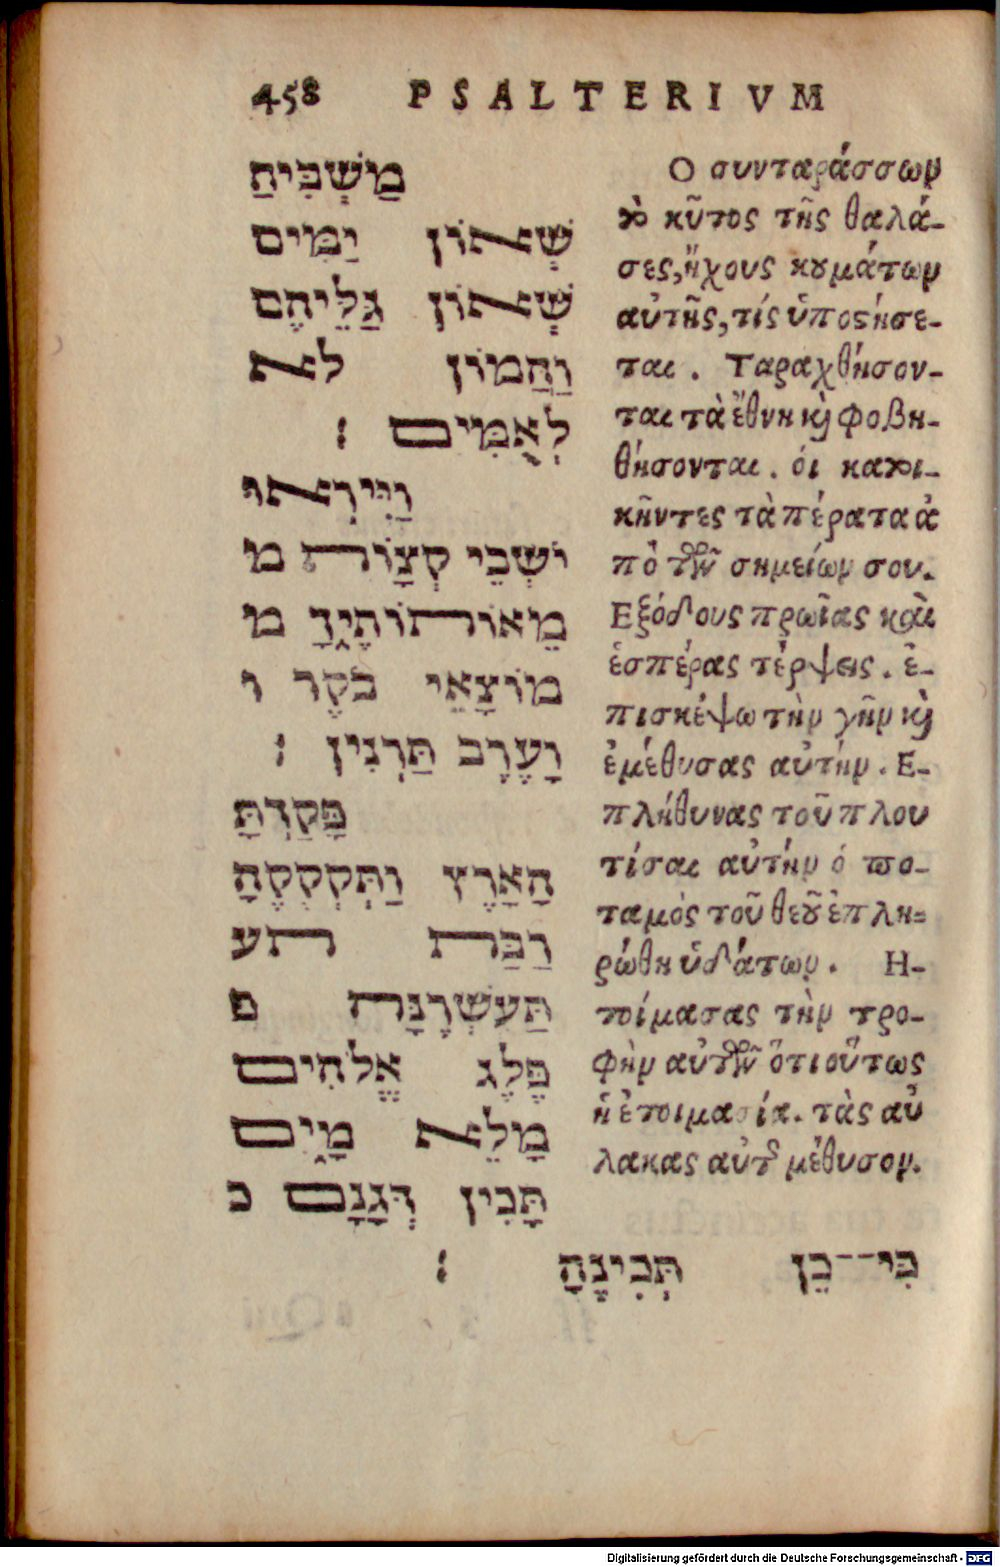 458 PSALTERIVM
מַשְׁבִּיחַ
שְׁאוֹן יַמִּים
שְׁאוֹן גַּלֵּיהֶם
וַהֲמוֹן לא
לְאֻמִּים :
וַיִּירְאוּ
יֹשְׁבֵי קְצָוֹת מ
מֵאוֹתוֹתֶיךָ מ
מוֹצָאֵי בֹקֶר ו
וָעֶרֶב תַּרְנִין :
פָּקַדְתָּ
הָאָרֶץ וַתְּקְקֶהָ
רַבַּת תע
תַּעשְׁרֶנָּה פ
פֶּלֶג אֱלֹהִים
מָלֵא מָיִם
תָּכִין דְּגָנָם כ
כִּי־־כֵן תְּכִינֶהָ :
Ο συνταράσσων
τὸ κῦτος τῆς θαλά-
σες, ἤχους κυμάτων
αὐτῆς, τίς ὑποστήσε-
ται. Ταραχθήσον-
ται τὰ ἔθνη καὶ φοβη-
θήσονται. ὁι κατοι-
κῆντες τὰ πέρατα ἀ
πὸ τῶν σημείων σου.
Εξόδους πρωΐας καὶ
ἑσπέρας τέρψεις. ἐ-
πισκέψω τὴν γῆν καὶ
ἐμέθυσας αὐτήν. Ε-
πλήθυνας τοῦ πλου
τίσαι αὐτήν ὁ πο-
ταμὸς τοῦ θεοῦ ἐπλη-
ρώθη ὑδάτων. Η-
τοίμασας τὴν τρο-
φὴν αὐτῶν ὅτι οὕτως
ἡ ἑτοιμασία. τὰς αὔ
λακας αὐτῆς μέθυσον.
Digitalisierung gefördert durch die Deutsche Forschungsgemeinschaft - DFG